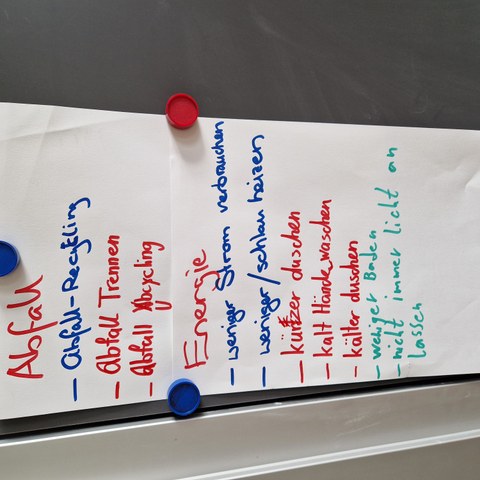 Abfall
- Abfall-Recycling
- Abfall Trennen
- Abfall Upcycling
Energie
- weniger Strom verbrauchen
- weniger/schlau heizen
- kürzer duschen
- kalt Händewaschen
- kälter duschen
- weniger Baden
- nicht immer licht an
lassen